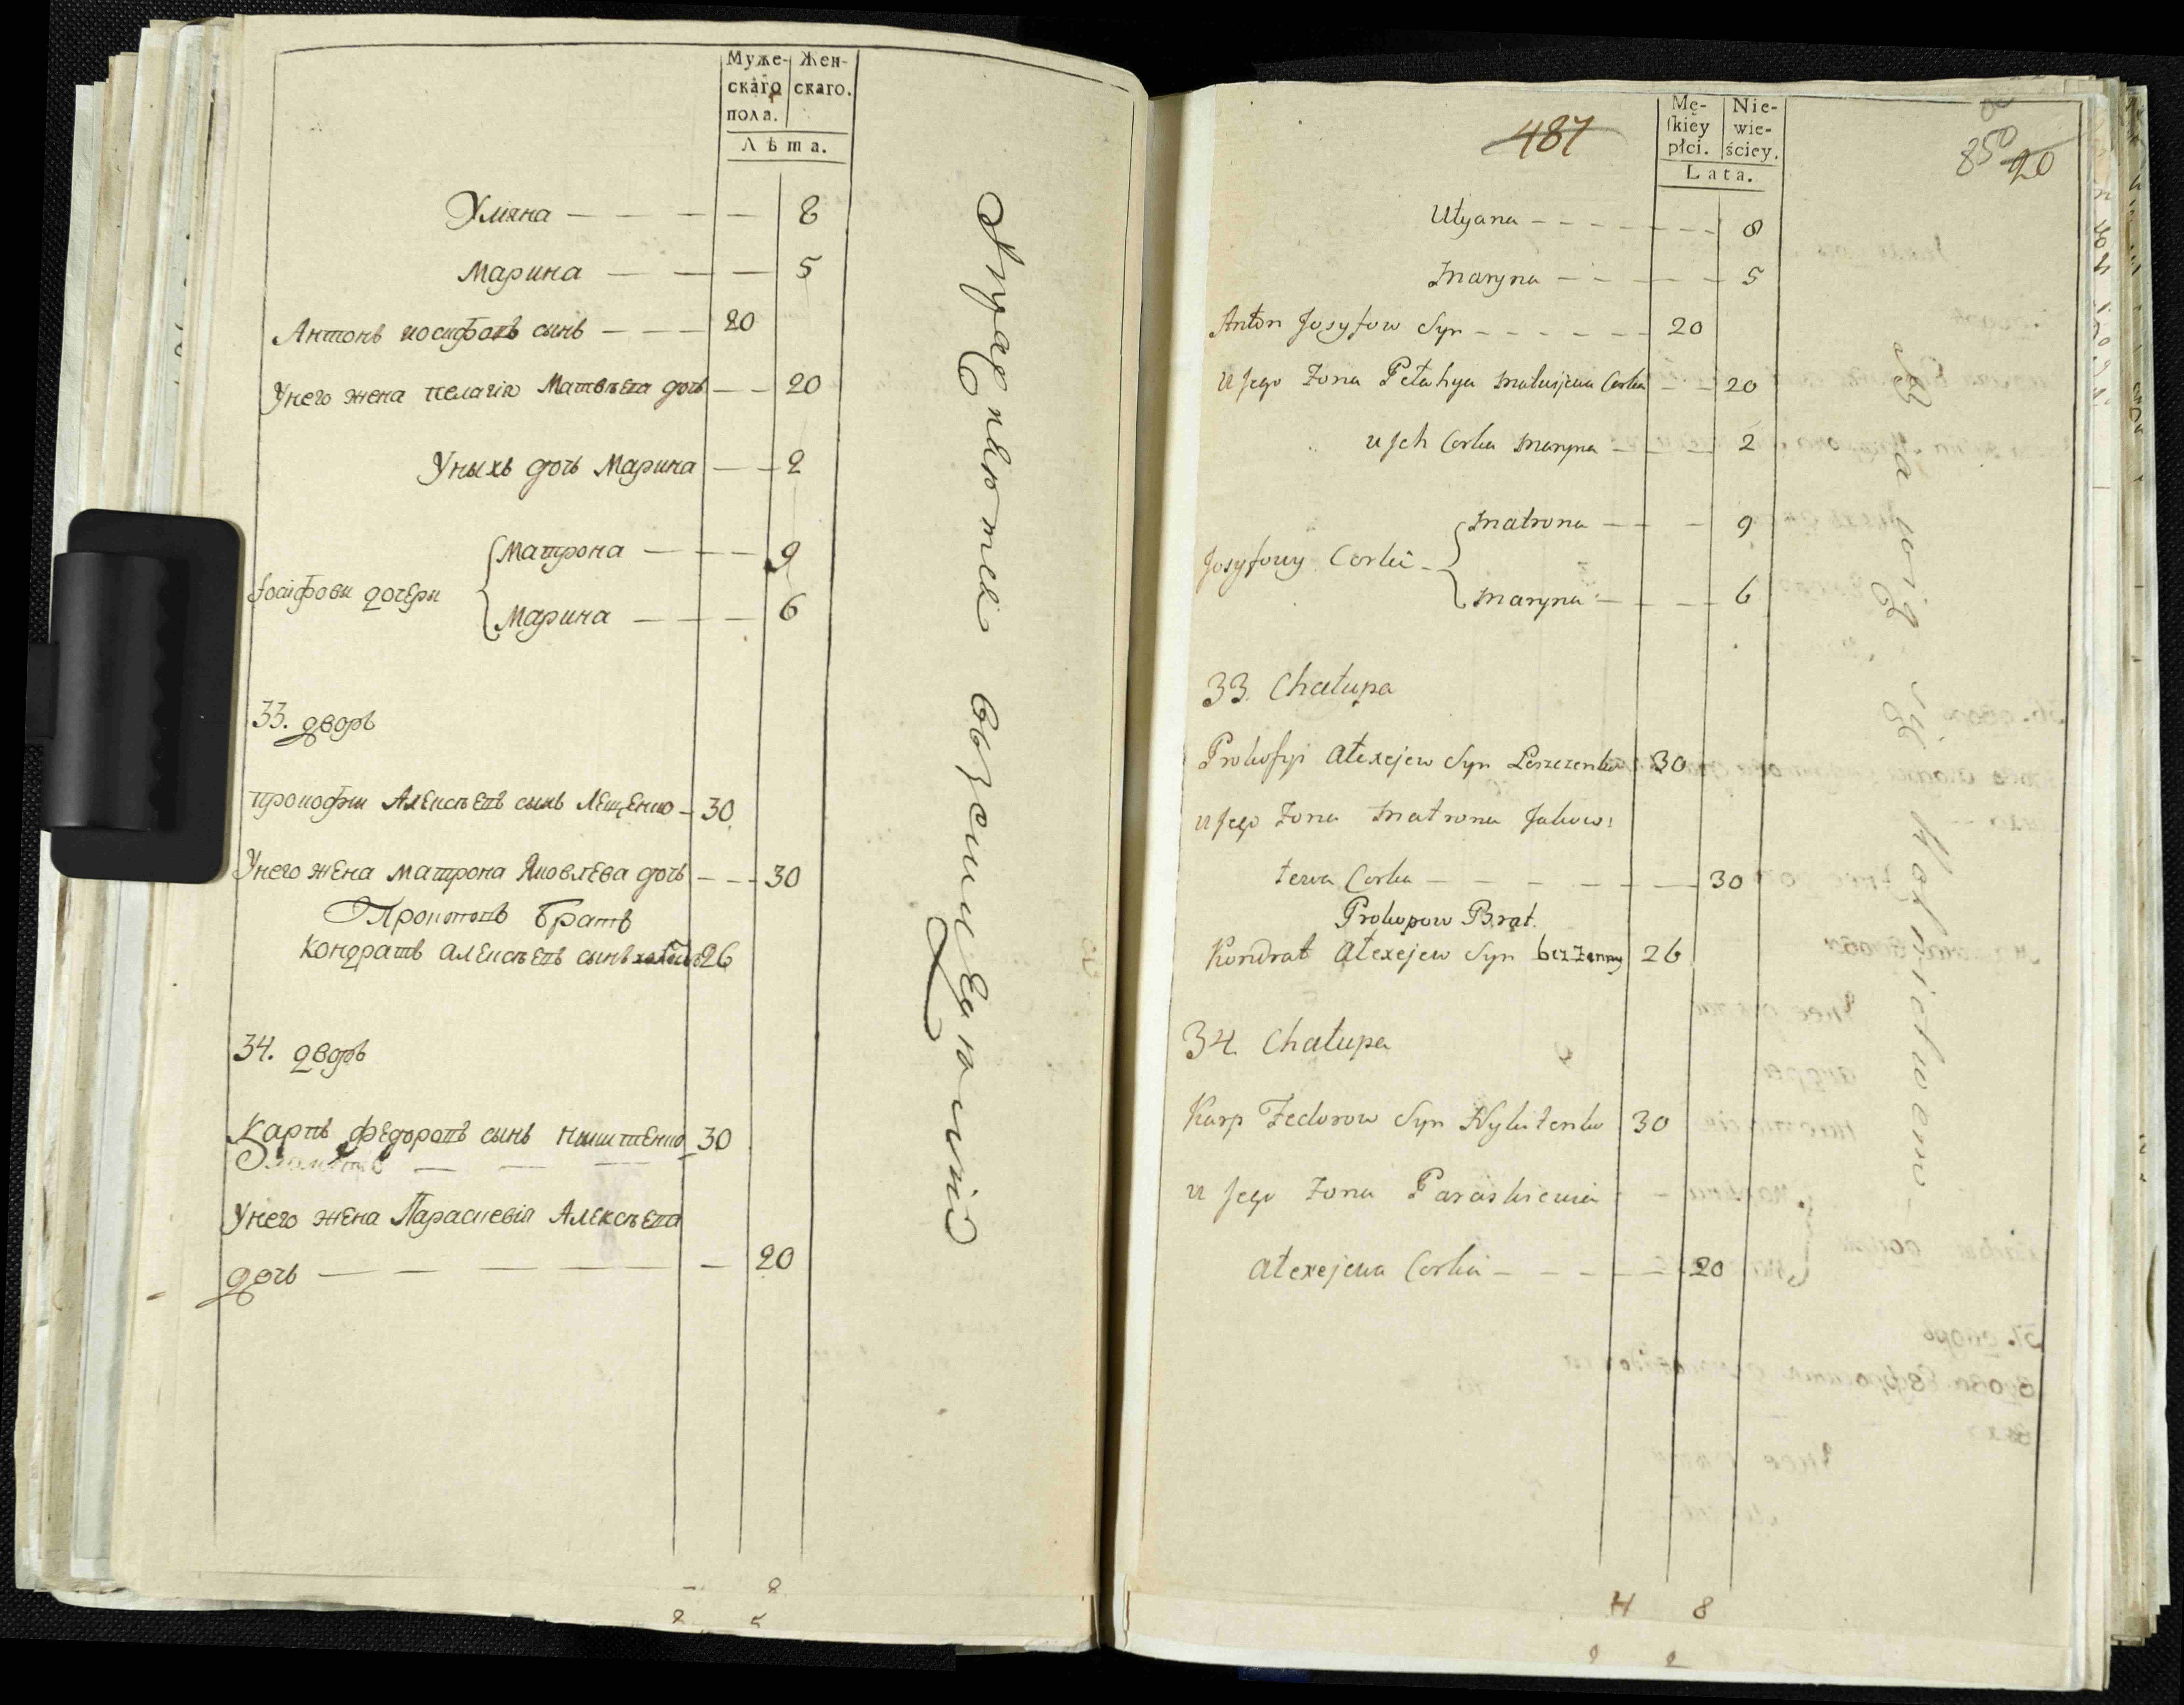 Муже- Жен-
скаго скаго.
пола.
Лѣта.
Уляна — — — — 8
Марина — — — 5
Антонъ иосифовъ сынъ — — — 20
Унего жена пелагiя Матвѣева дочь — — 20
Уныхъ дочь Марина — — 2
Иосифовы дочери
Матрона — — — 9
Марина — — — 6
33. дворъ
прокофiи Алексѣевъ сынъ Лещенко — 30
Унего жена матрона Яковлева дочь — — — 30
Прокоповъ братъ
кондратъ алексѣевъ сынъ 26
34. дворъ
Карпъ федоровъ сынъ 30
Унего жена Параскевiя Алексѣева
дочь — — — — — — 20
487
Mę- Nie-
skiey wie-
płci. ściey.
Lata.
850
90
Ulyana — — — — 8
Maryna — — — — 5
Anton Josyfow Syn — — — — 20
U Jego Zona Pelahya Matwijewa Corka — — 20
u Jch Corka Maryna — — — 2
Josyfowy Corki
Matrona — — — 9
Maryna — — — 6
33. Chałupa
Prokofyi Alexejew Syn Leszczenko 30
u Jego Zona Matrona Jakow:
lewa Corka — — — — — 30
Prokopow Brat.
Kondrat Alexejew Syn bezżenny 26
34. Chałupa
Karp Fedorow Syn 30
u Jego Zona Paraskiewia — —
Alexejewa Corka — — — — 20
4 8